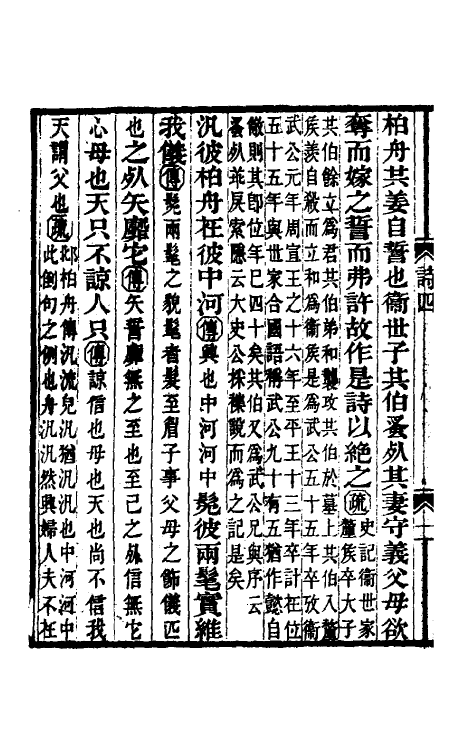 柏舟共姜自誓也衞世子共伯蚤死其妻守義父母欲
奪而嫁之誓而弗許故作是詩以絶之疏史記衞世家
釐矦卒大子
共伯餘立爲君共伯弟和襲攻共伯於墓上共伯入釐
矦羨自殺而立和爲衞矦是爲武公五十五年卒攷衞
武公元年周宣王之十六年至平王十三年卒計在位
五十五年與世家合國語稱武公九十有五猶作懿自
儆則其卽位年已四十矣共伯又爲武公兄與序云
蚤死並戾索隱云大史公採襍說而爲之記是矣
汎彼柏舟在彼中河傳興也中河河中髧彼兩髦實維
我儀傳髧兩髦之貌髦者髮至眉子事父母之飾儀匹
也之死矢靡它傳矢誓靡無之至也至己之死信無它
心母也天只不諒人只傳諒信也母也天也尚不信我
天謂父也疏邶柏舟傳汎流皃汎猶汎汎也中河河中
此倒句之例也舟汎汎然興婦人夫不在
詩四
十